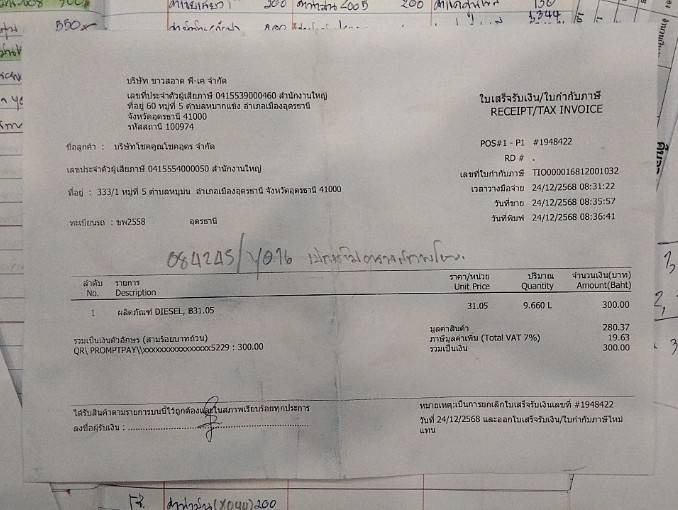 550
200
200
1,344
บริษัท ขาวสอาด พี.เค จำกัด
เลขที่ประจำตัวผู้เสียภาษี 0415539000460 สำนักงานใหญ่
ที่อยู่ 60 หมู่ที่ 5 ตำบลหมากแข้ง อำเภอเมืองอุดรธานี
จังหวัดอุดรธานี 41000
รหัสสถานี 100974
ใบเสร็จรับเงิน/ใบกำกับภาษี
RECEIPT/TAX INVOICE
POS#1 - P1 #1948422
RD # .
ชื่อลูกค้า : บริษัทโชคคูณโชคอุดร จำกัด
เลขประจำตัวผู้เสียภาษี 0415554000050 สำนักงานใหญ่
เลขที่ใบกำกับภาษี TIO000016812001032
ที่อยู่ : 333/1 หมู่ที่ 5 ตำบลหมูม่น อำเภอเมืองอุดรธานี จังหวัดอุดรธานี 41000
เวลาวางมือจ่าย 24/12/2568 08:31:22
วันที่ขาย 24/12/2568 08:35:57
วันที่พิมพ์ 24/12/2568 08:36:41
ทะเบียนรถ : ขพ2558 อุดรธานี
084245/
ลำดับ รายการ ราคา/หน่วย ปริมาณ จำนวนเงิน(บาท)
No. Description Unit Price Quantity Amount(Baht)
1 ผลิตภัณฑ์ DIESEL, B31.05 31.05 9.660 L 300.00
มูลค่าสินค้า 280.37
รวมเป็นเงินตัวอักษร (สามร้อยบาทถ้วน) ภาษีมูลค่าเพิ่ม (Total VAT 7%) 19.63
QR\ PROMPTPAY\\xxxxxxxxxxxxxxx5229 : 300.00 รวมเป็นเงิน 300.00
ได้รับสินค้าตามรายการบนนี้ไว้ถูกต้องและในสภาพเรียบร้อยทุกประการ
ลงชื่อผู้รับเงิน :
หมายเหตุ:เป็นการยกเลิกใบเสร็จรับเงินเลขที่ #1948422
วันที่ 24/12/2568 และออกใบเสร็จรับเงิน/ใบกำกับภาษีใหม่
แทน
200